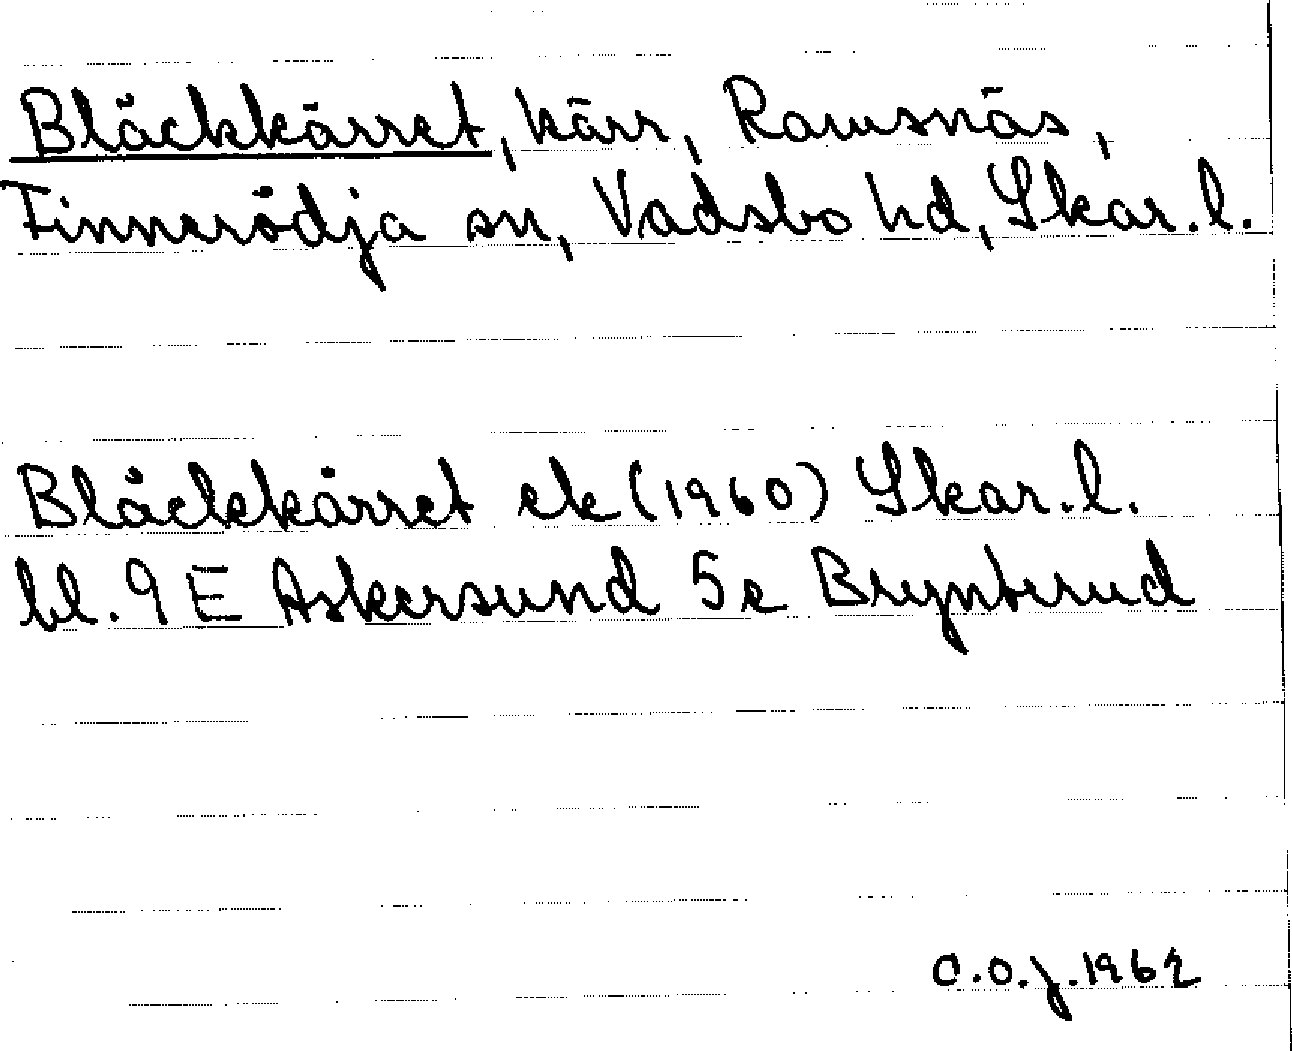 Bläckkärret, kärr, Ramsnäs,
Finnerödja sn, Vadsbo hd, Skar.l.
Bläckkärret ek (1960) Skar.l.
bl. 9 E Askersund 5e Brynterud
C.O.J. 1962